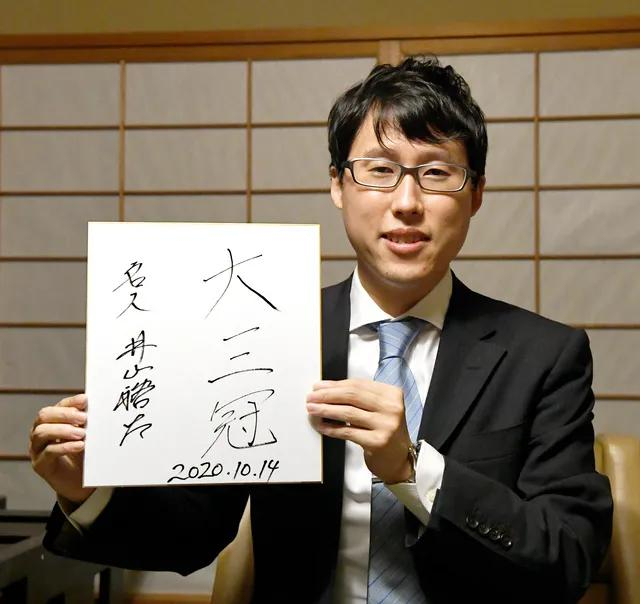 大三冠
2020.10.14
名人 井山裕太